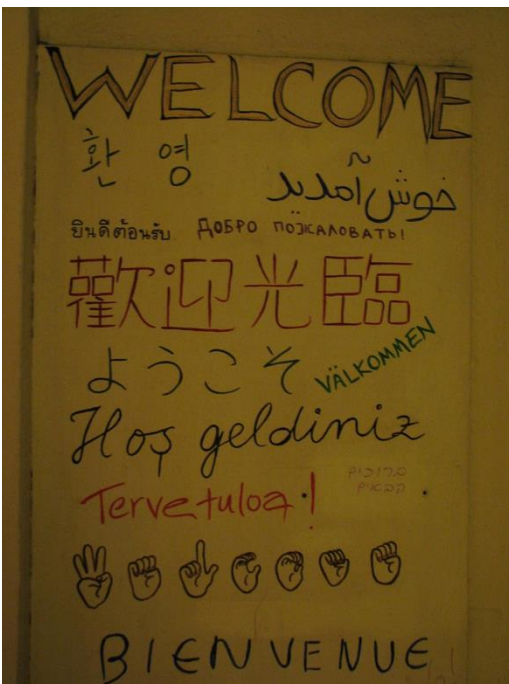 WELCOME
환 영
خوش آمدید
ยินดีต้อนรับ ДОБРО ПОЖАЛОВАТЬ!
歡迎光臨
ようこそ VÄLKOMMEN
Hoş geldiniz
ברוכים
הבאים
Tervetuloa!
BIENVENUE